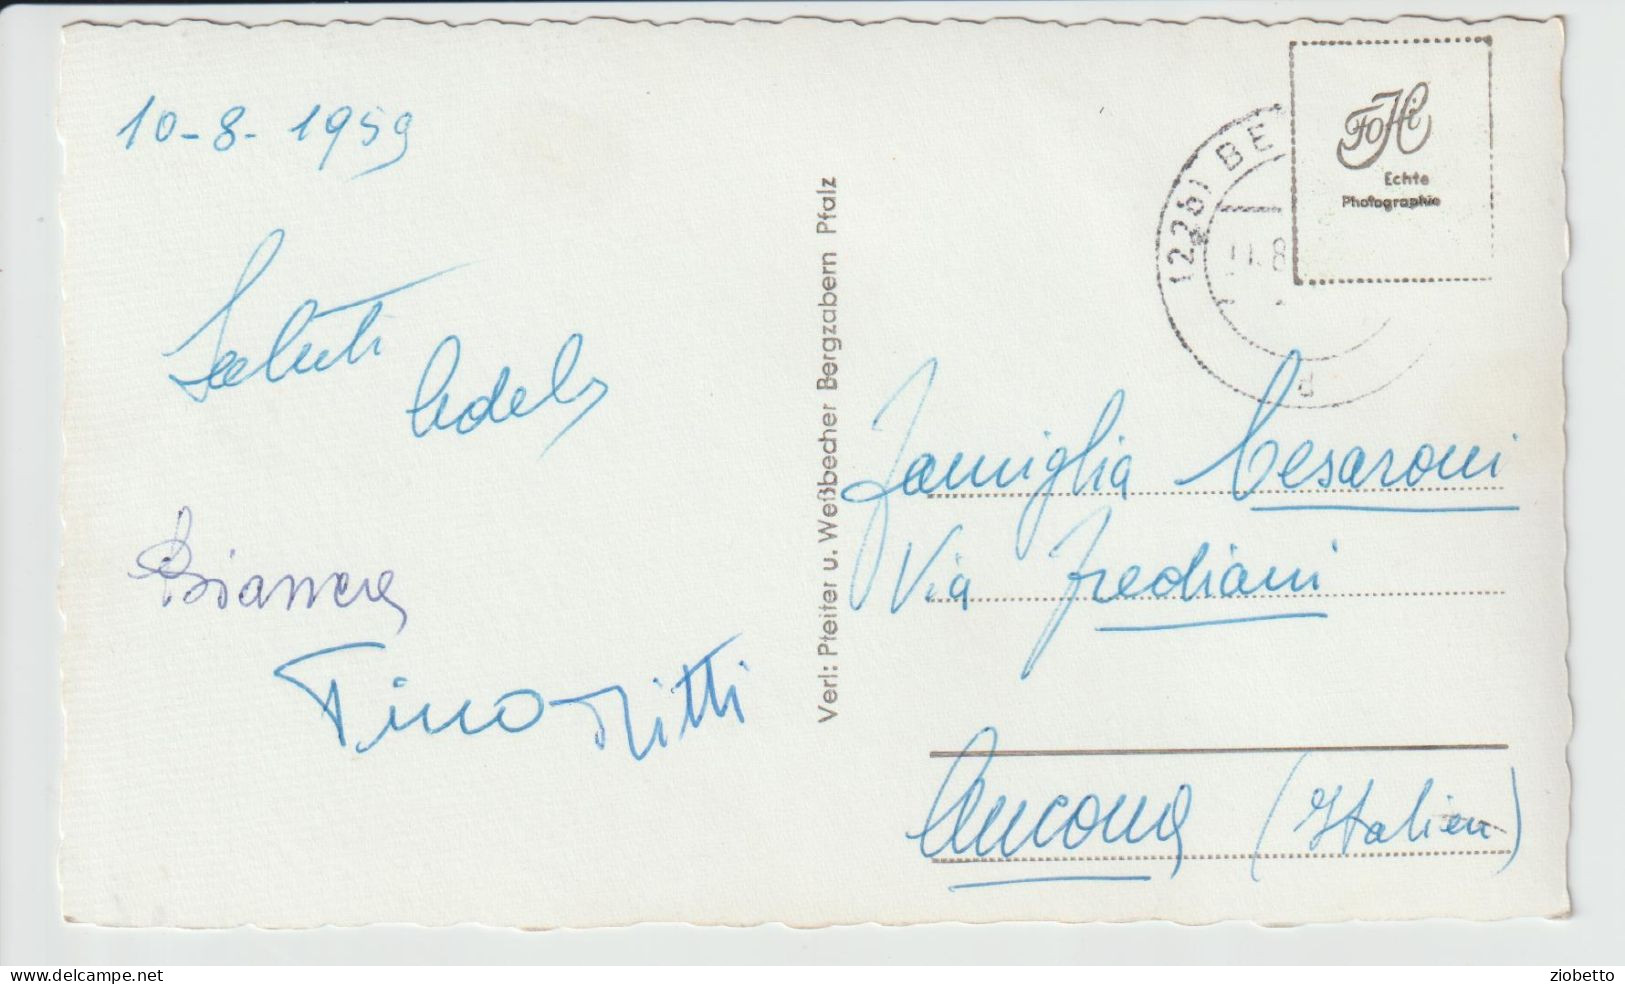 10-8-1959
Saluti
Adele
Bianca
Tino Pitti
Verl: Pfeiffer u. Weißbecher Bergzabern Pfalz
(22b) BE
11.8
d
FoHi
Echte
Photographie
Famiglia Cesaroni
Via Frediani
Ancona (Italien)
www.delcampe.net
ziobetto